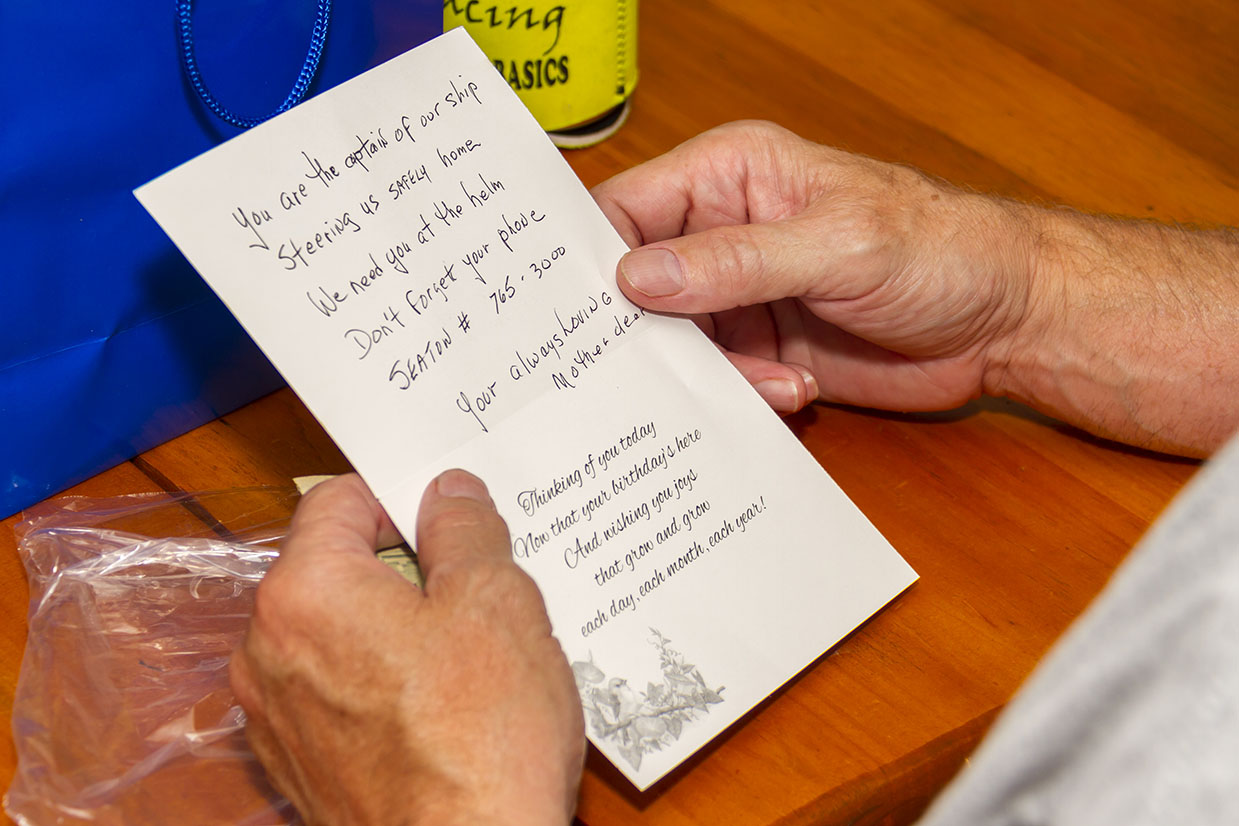 cing
BASICS
You are the captain of our ship
Steering us safely home
We need you at the helm
Don't forget your phone
SEATOW # 765-3000
Your always loving
Mother deer
Thinking of you today
Now that your birthday's here
And wishing you joys
that grow and grow
each day, each month, each year!